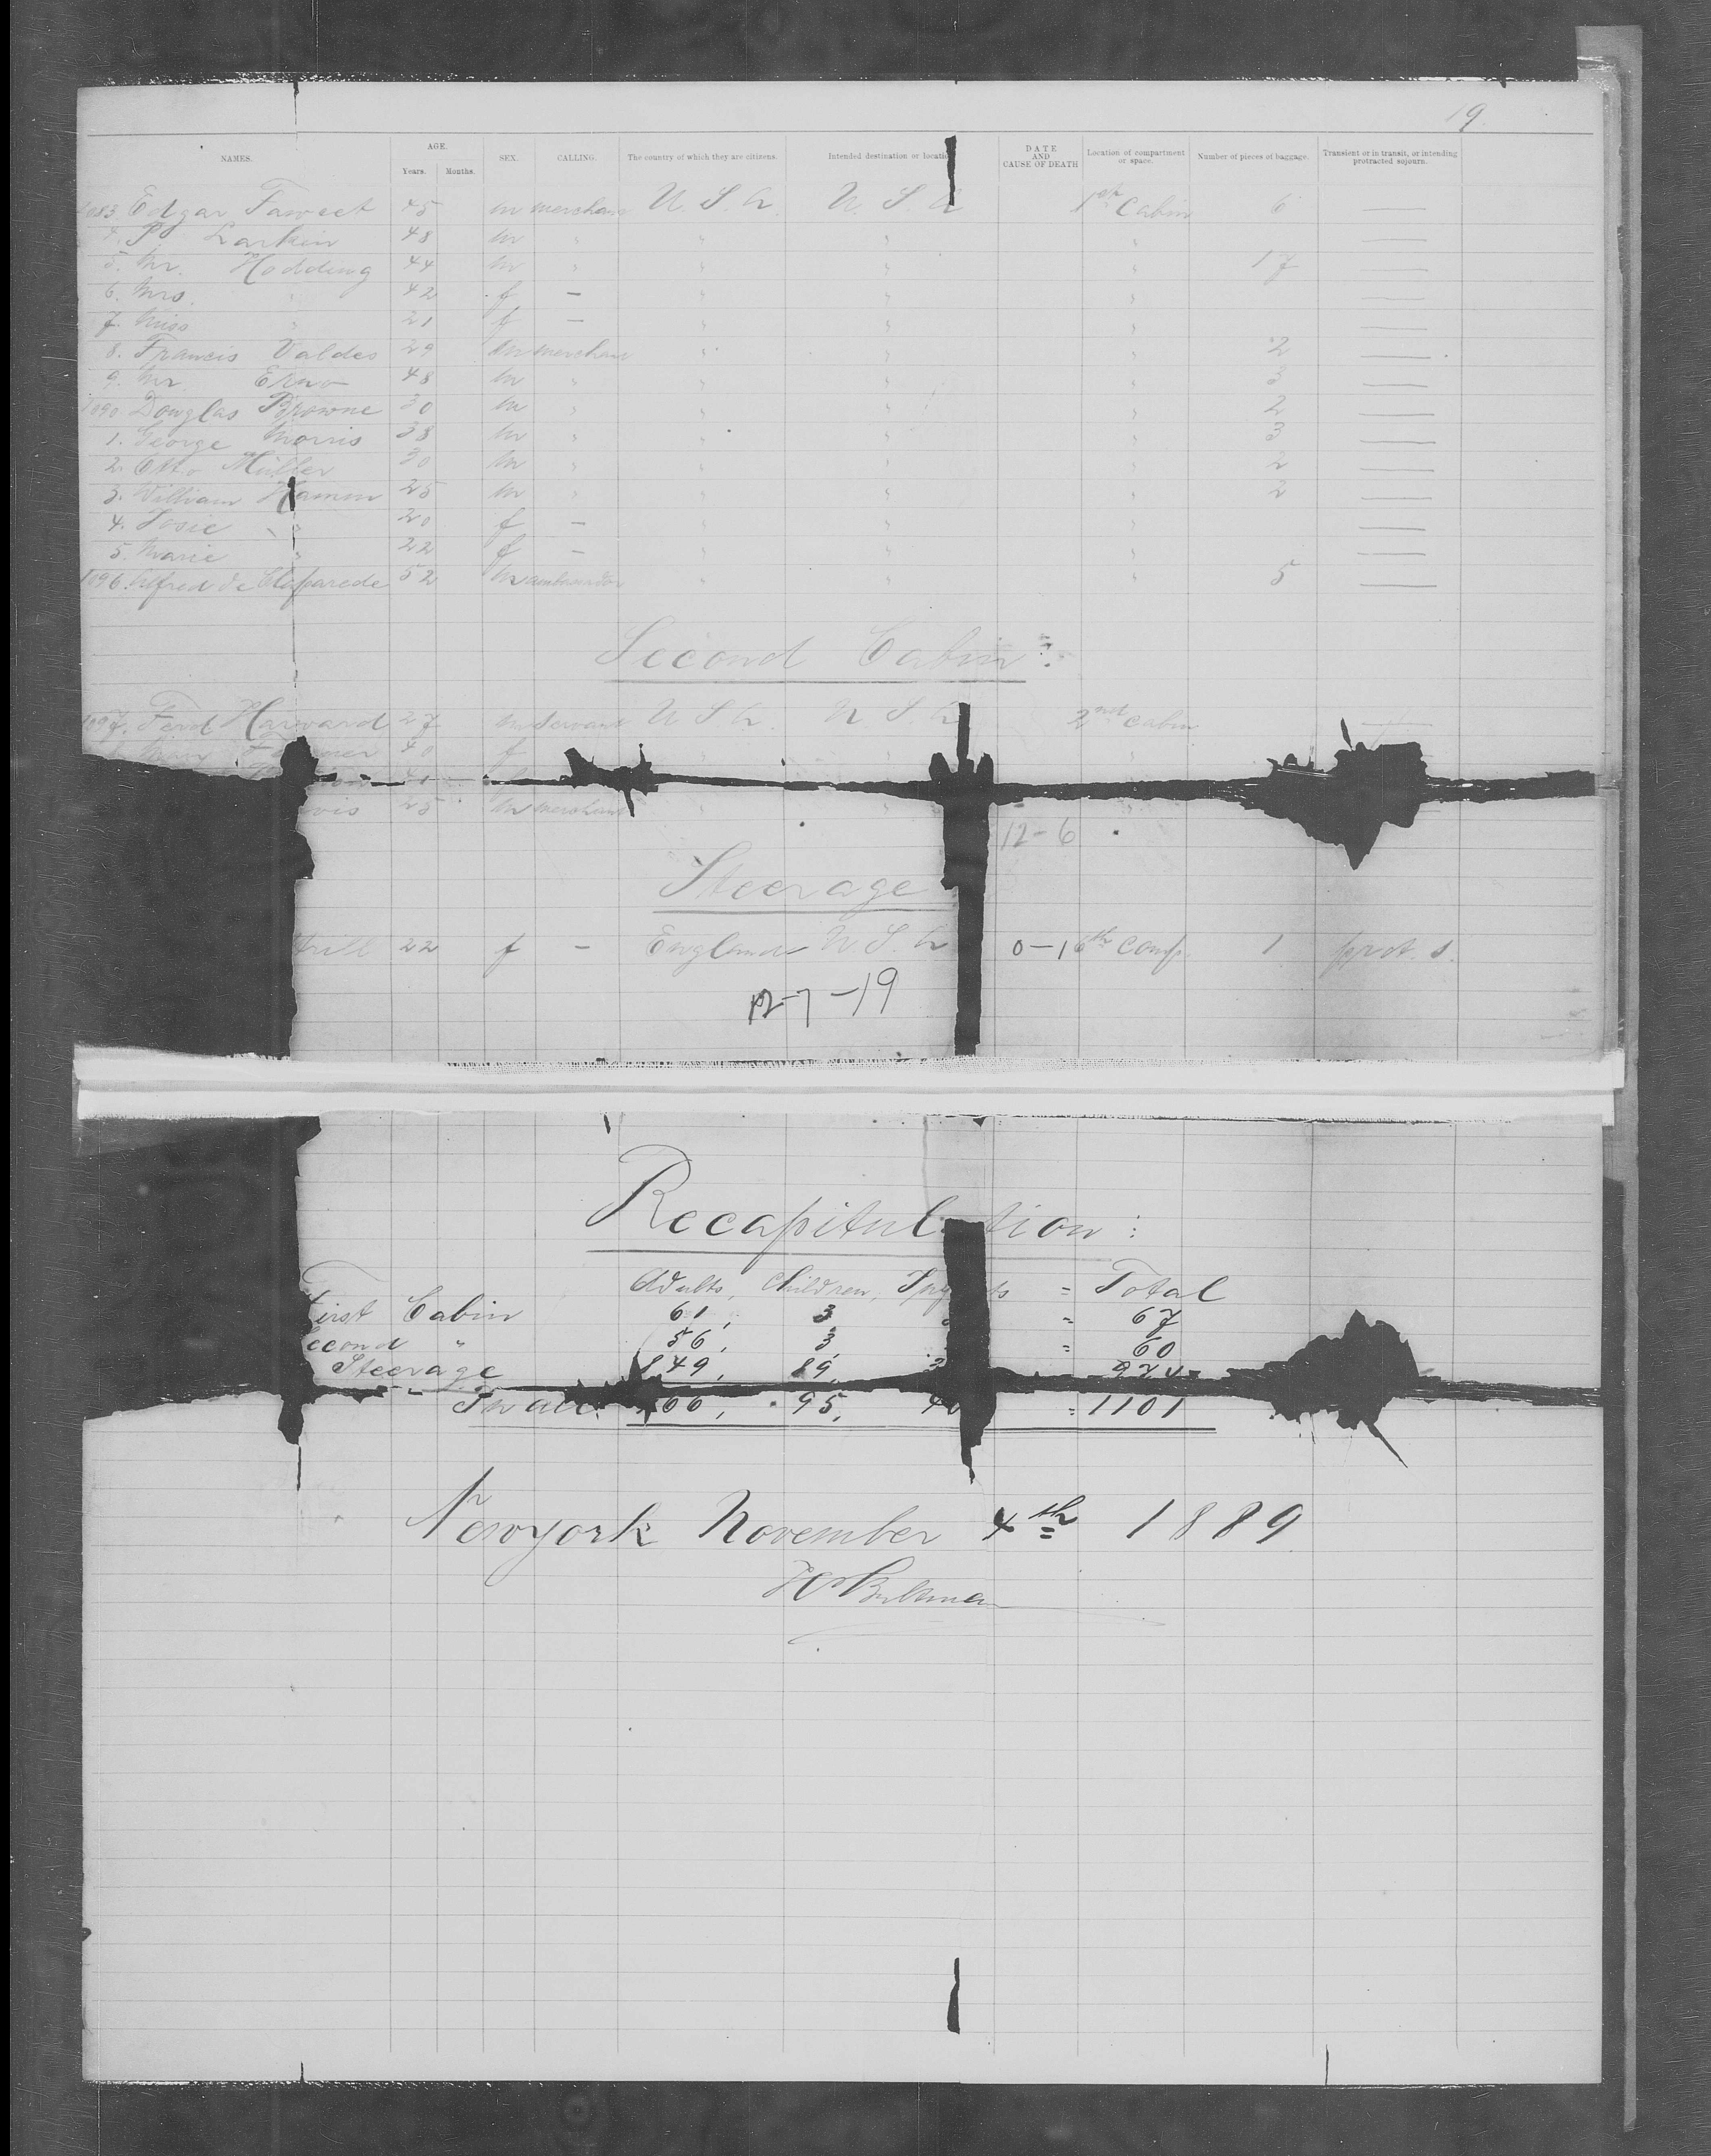 19.
NAMES. AGE. Years. Months. SEX. CALLING. The country of which they are citizens. Intended destination or locati DATE AND CAUSE OF DEATH Location of compartment or space. Number of pieces of baggage. Transient or in transit, or intending protracted sojourn.
1083. Edgar Fawcet 45 m merchant U. S. A. U. S. A 1st Cabin 6 —
4. P. Larkin 48 m " " " " —
5. Mr. Hodding 44 m " " " " 17 —
6. Mrs. " 42 f — " " " —
7. Miss " 21 f — " " " —
8. Francis Valdes 29 m merchant " " " 2 —
9. Mr. 48 m " " " " 3 —
1090. Douglas Browne 30 m " " " " 2 —
1. George Morris 38 m " " " " 3 —
2. Otto Müller 30 m " " " " 2 —
3. William Hamm 25 m " " " " 2 —
4. Josie " 20 f — " " " —
5. Marie " 22 f — " " " —
1096. Alfred de Claparede 52 m ambassador " " " 5 —
Second Cabin:
1097. Ferd Harward 27 m Servant U S A. U. S. A 2nd Cabin —
Mary 40 f
41
25 m merchant " "
12-6
Steerage
22 f — England U S. A 0-1 6th Comp. 1 prot. s.
-7-19
Recapitul tion:
Adults, Children, Inf ts = Total
First Cabin 61, 3 = 67
econd " 56, 3, = 60
Steerage 849, 89,
In all 66, 95, 40 = 1101
Newyork November 4th 1889